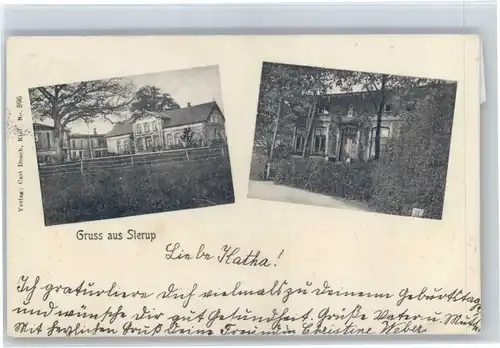 Verlag: Carl Dosch, Kiel No. 896
Gruss aus Sterup
Liebe Katha!
Ich graturliere Dich vielmals zu deinem Geburtstage
und wünsche Dir gut Gesundheit. Grüße Vater u. Mutter
Mit herzlichen Gruß Deine Freundin Christine Weber